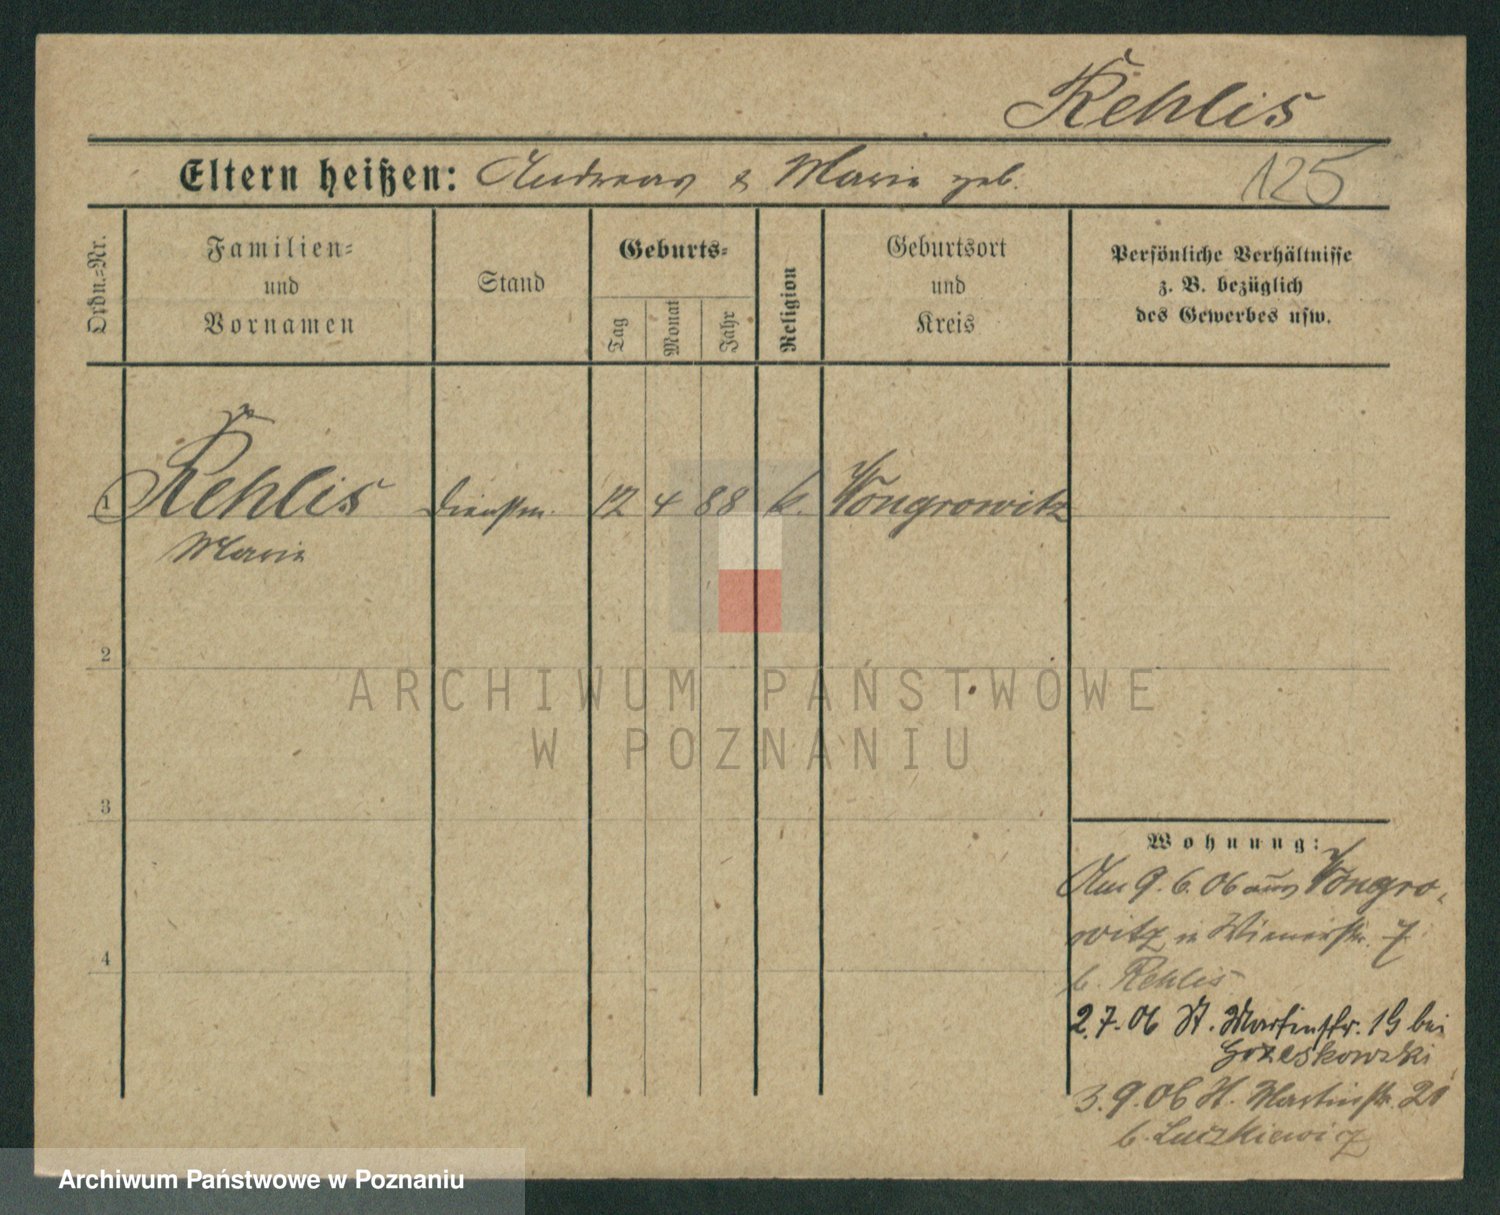 Rehlis
Eltern heißen: Andreas & Marie geb.
125
Ordn.=Nr.
Familien=
und
Vornamen
Stand
Geburts=
Tag
Monat
Jahr
Religion
Geburtsort
und
Kreis
Persönliche Verhältnisse
z. B. bezüglich
des Gewerbes usw.
1 Rehlis Dienstm. 12 4 88 k. Wongrowitz
Marie
2
3
4
ARCHIWUM PAŃSTWOWE
W POZNANIU
Wohnung:
Am 9.6.06 aus Wongro-
witz in Wienerstr. 7
b. Rehlis
2.7.06 St. Martinstr. 19 bei
Grzeskowski
3.9.06 St. Martinstr. 21
b. Luczkiewicz
Archiwum Państwowe w Poznaniu